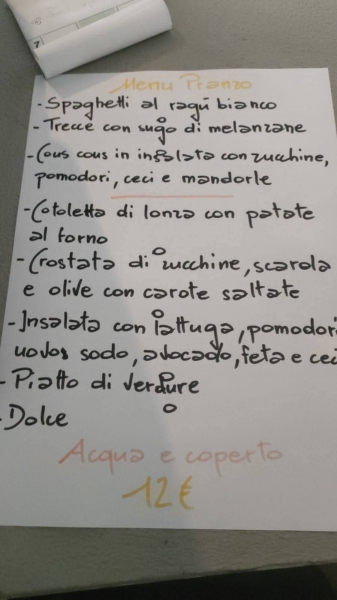 Menu Pranzo
- Spaghetti al ragù bianco
- Trecce con sugo di melanzane
- Cous cous in insalata con zucchine,
pomodori, ceci e mandorle
- Cotoletta di lonza con patate
al forno
- Crostata di zucchine, scarola
e olive con carote saltate
- Insalata con lattuga, pomodori
sodo, avocado, feta e ceci
- Piatto di verdure
- Dolce
Acqua e coperto
12€